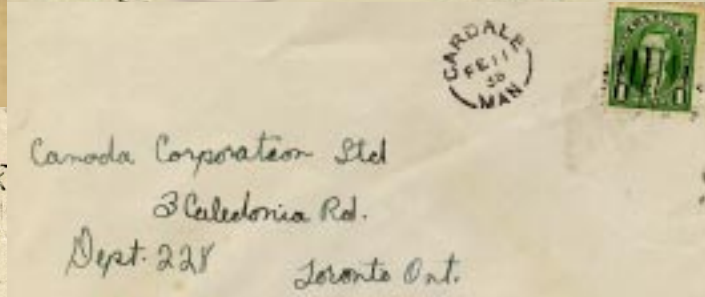 CARDALE
FE 11
36
MAN
1 1
Canada Corporation Ltd
3 Caledonia Rd.
Dept. 228
Toronto Ont.